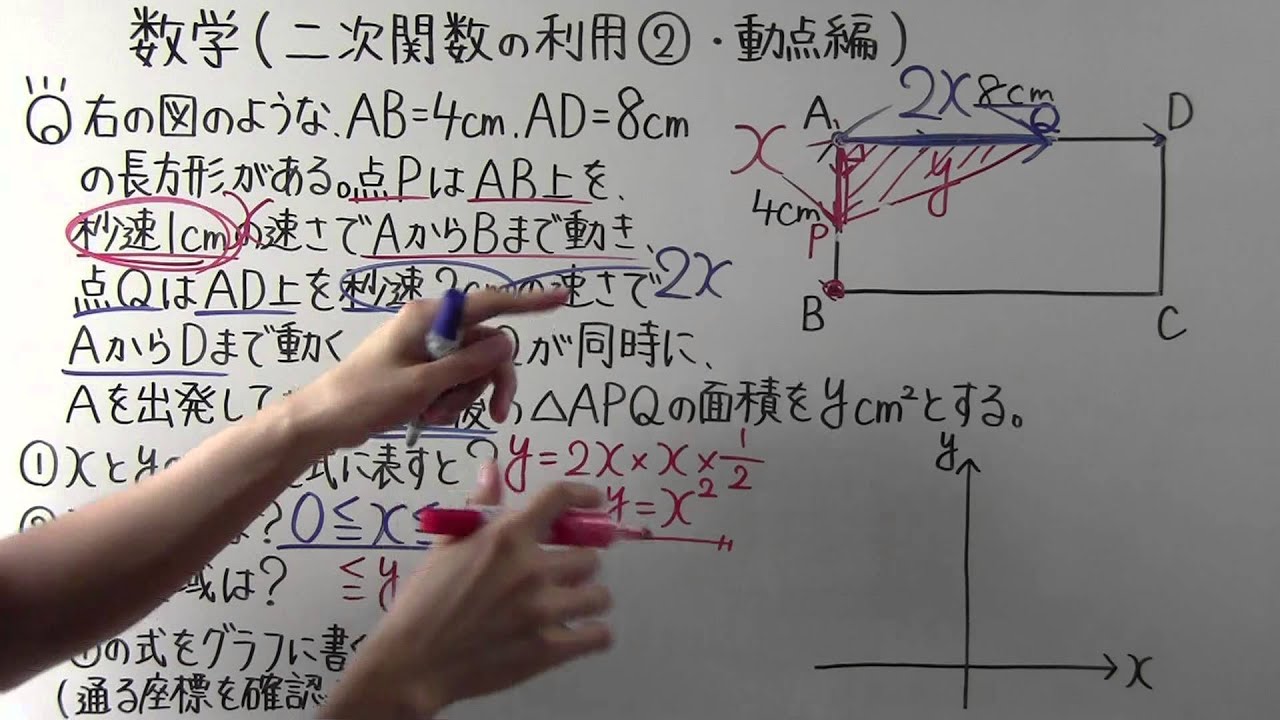 数学(二次関数の利用②・動点編)
Q 右の図のような、AB=4cm、AD=8cm
の長方形がある。点PはAB上を、
秒速1cmの速さでAからBまで動き、
x
点QはAD上を秒速2cmの速さで 2x
AからDまで動く Qが同時に、
Aを出発して 後の△APQの面積をycm²とする。
①xとyの 式に表すと? y=2x×x×1/2
y=x²
は? 0≦x≦
域は? ≦y
の式をグラフに書く
(通る座標を確認
2x 8cm
A Q D
x
y
4cm
P
B C
y
x